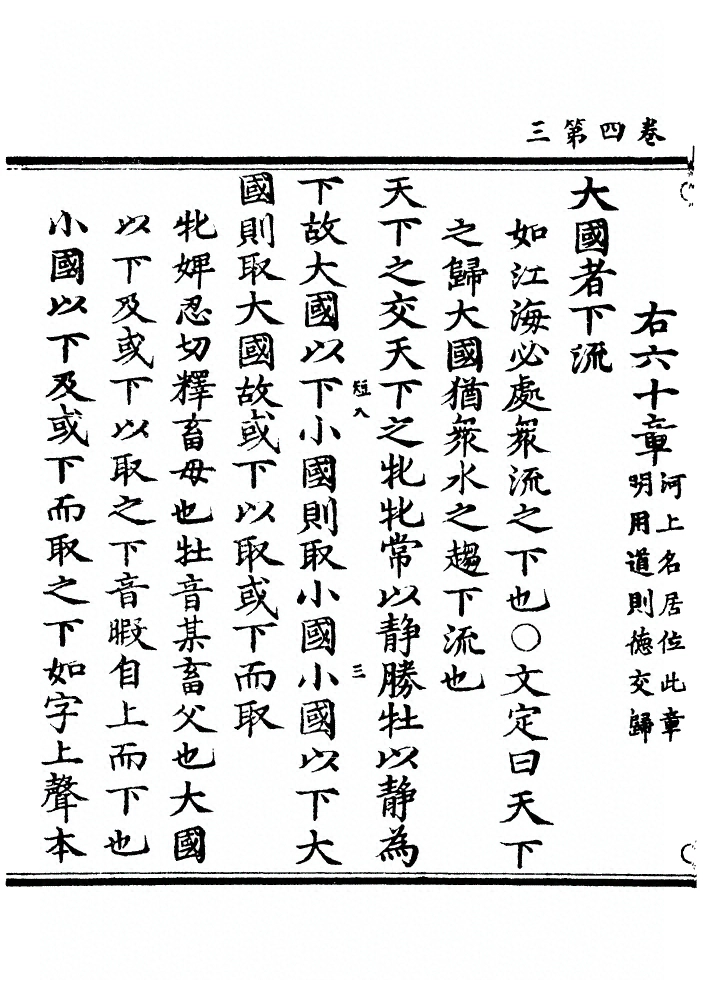 三第四卷
右六十章
河上名居位此章
明用道則德交歸
大國者下流
如江海必處衆流之下也〇文定曰天下
之歸大國猶衆水之趨下流也
天下之交天下之牝牝常以静勝牡以静為
下故大國以下小國則取小國小國以下大
短入
三
國則取大國故或下以取或下而取
牝婢忍切釋畜母也牡音某畜父也大國
以下及或下以取之下音暇自上而下也
小國以下及或下而取之下如字上聲本